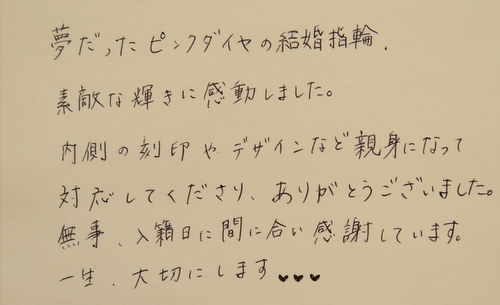 夢だったピンクダイヤの結婚指輪、
素敵な輝きに感動しました。
内側の刻印やデザインなど親身になって
対応してくださり、ありがとうございました。
無事、入籍日に間に合い感謝しています。
一生、大切にします♥♥♥